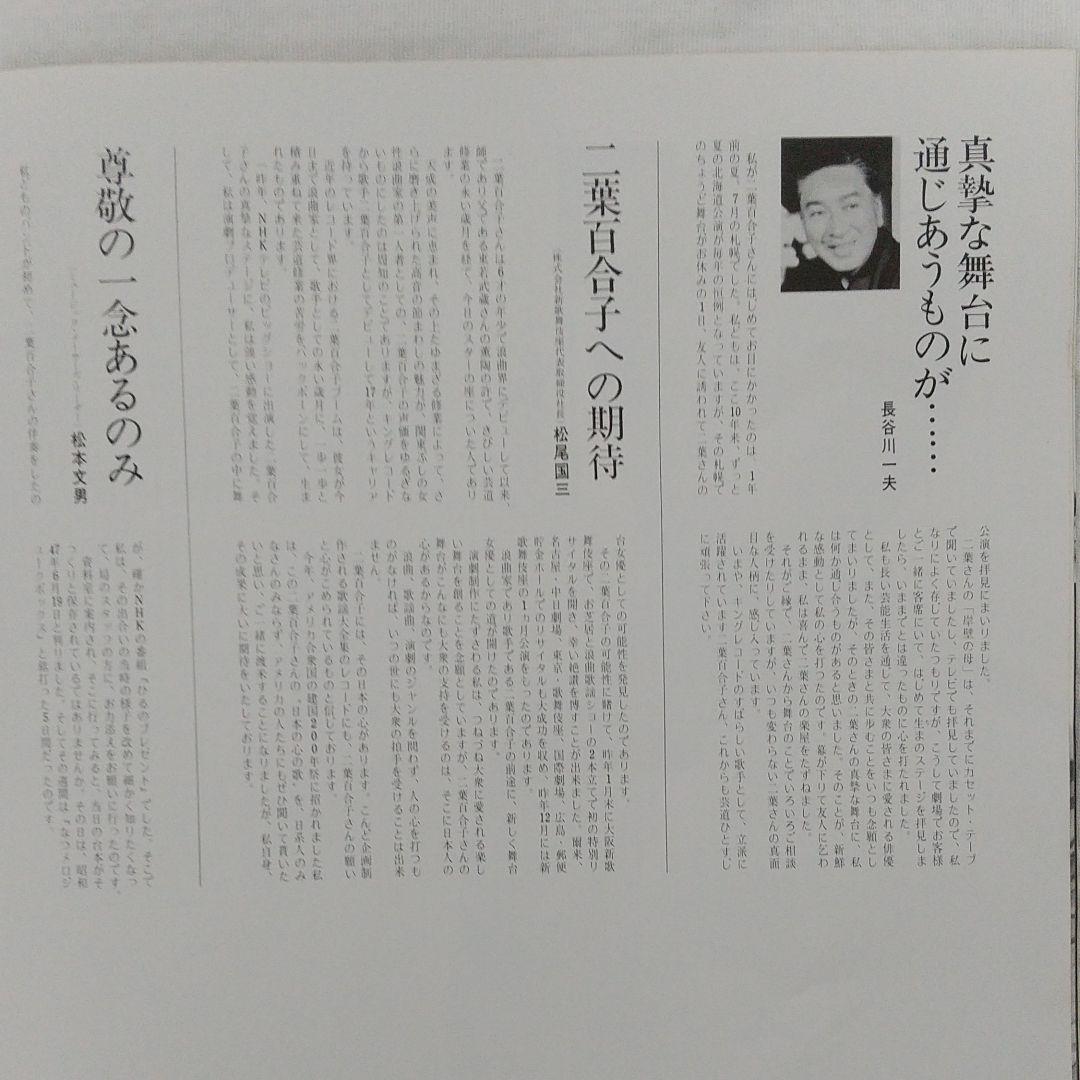 真摯な舞台に
通じあうものが……
長谷川一夫
私が二葉百合子さんにはじめてお目にかかったのは、1年
前の夏、7月の札幌でした。私どもは、ここ10年来、ずっと
夏の北海道公演が毎年の恒例となっていますが、その札幌で
のちょうど舞台がお休みの1日、友人に誘われて二葉さんの
公演を拝見にまいりました。
二葉さんの「岸壁の母」は、それまでにカセット・テープ
で聞いていましたし、テレビでも拝見していましたので、私
なりによく存じていたつもりですが、こうして劇場でお客様
とご一緒に客席にいて、はじめて生まのステージを拝見しま
したら、いままでとは違ったものに心を打たれました。
私も長い芸能生活を通して、大衆の皆さまに愛される俳優
として、また、その皆さまと共に歩むことをいつも念願とし
てまいりましたが、そのときの二葉さんの真摯な舞台に、私
は何か通じ合うものがあると思いました。そのことが、新鮮
な感動として私の心を打ったのです。幕が下りて友人に乞わ
れるまま、私は喜んで二葉さんの楽屋をたずねました。
それがご縁で、二葉さんから舞台のことでいろいろご相談
を受けたりしていますが、いつも変わらない二葉さんの真面
目な人柄に、感じ入っています。
いまや、キングレコードのすばらしい歌手として、立派に
活躍されています二葉百合子さん、これからも芸道ひとすじ
に頑張って下さい。
二葉百合子への期待
(株式会社新歌舞伎座代表取締役社長)松尾国三
二葉百合子さんは6才の年少で浪曲界にデビューして以来、
師であり父である東若武蔵さんの薫陶の許で、きびしい芸道
修業の永い歳月を経て、今日のスターの座についた人であり
ます。
天成の美声に恵まれ、その上たゆまざる修業によって、さ
らに磨き上げられた高音の節まわしの魅力が、関東ぶしの女
性浪曲家の第一人者としての、二葉百合子の声価をゆるぎな
いものにしたのは周知のことでありますが、キングレコード
から歌手二葉百合子としてデビューして17年というキャリア
を持っています。
近年のレコード界における二葉百合子ブームは、彼女が今
日まで浪曲家として、歌手としての永い歳月に、一歩一歩と
積み重ねて来た芸道修業の苦労をバックボーンにして、生ま
れたものであります。
昨年、NHKテレビのビッグショーに出演した二葉百合
子さんの真摯なステージに、私は強い感動を覚えました。そ
して、私は演劇プロデューサーとして、二葉百合子の中に舞
台女優としての可能性を発見したのであります。
その二葉百合子の可能性に賭けて、昨年1月末に大阪新歌
舞伎座で、お芝居と浪曲歌謡ショーの2本立てで初の特別リ
サイタルを開き、幸い絶讃を博すことが出来ました。爾来、
名古屋・中日劇場、東京・歌舞伎座、国際劇場、広島・郵便
貯金ホールでのリサイタルも大成功を収め、昨年12月には新
歌舞伎座の1カ月公演をしたのであります。
浪曲家であり歌手である二葉百合子の前途に、新しく舞台
女優としての道が開けたのであります。
演劇制作にたずさわる私は、つねづね大衆に愛される楽し
い舞台を創ることを念願としていますが、二葉百合子さんの
舞台がこんなにも大衆の支持を受けるのは、そこに日本人の
心があるからなのです。
浪曲、歌謡曲、演劇のジャンルを問わず、人の心を打つも
のがなければ、いつの世にも大衆の拍手を受けることは出来
ません。
二葉百合子には、その日本の心があります。こんど企画制
作される歌謡大全集のレコードにも、二葉百合子さんの願い
と心がこめられているものと信じております。
今年、アメリカ合衆国の建国200年祭に招かれました私
は、この二葉百合子さんの、『日本の心の歌』を、日系人のみ
なさんのみならず、アメリカの人たちにもぜひ聞いて貰いた
いと思い、ご一緒に渡米することになりましたが、私自身、
その成果に大いに期待をいたしております。
尊敬の一念あるのみ
松本文男
私どものバンドが初めて、二葉百合子さんの伴奏をしたの
が、確かNHKの番組「ひるのプレゼント」でした。そこで
私は、その出合いの当時の様子を改めて細かく知りたくなっ
て、局のスタッフの方に、お力添えをお願いに行ったのです。
資料室に案内され、そこに行ってみると、当日の台本がそ
っくりと保存されているではありませんか。その日は、昭和
47年6月19日と判りました。そしてその週間は「なつメロジ
ュークボックス」と銘打った5日間だったのです。